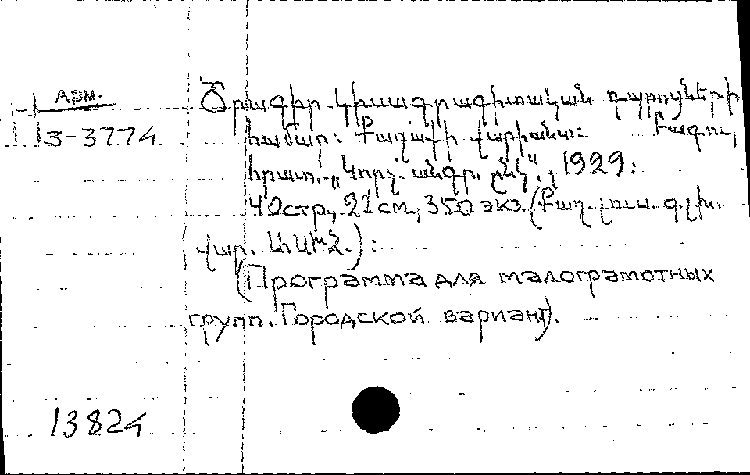 Арм.
Ծրագիր կիսագրագիտական դպրոցների
3-3774
համար: Քաղաքի վարիանտ: Բագու,
հրատ. „Կոոպ. անգր. ընկ“., 1929:
40стр., 21см, 350 экз. (Բաղ. լուս. գ.լխ.
վար. ԱԽՍՀ.):
(Программа для малограмотных
групп. Городской вариант).
13824